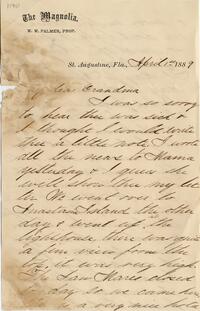 The Magnolia.
W. W. PALMER, PROP.
St. Augustine, Fla., April 1st 1889
My dear Grandma
I was so sorry
to hear that was sick &
I thought I would write
this a little note I wrote
all the news to Mama
yesterday & I guess she
will show you my let
ter We went over to
Anastasia Island the other
day & went up the
lighthouse, there was quite
a fine view from the
top, it was very high.
The San Marco closed
to day so we came here
a very nice hotel